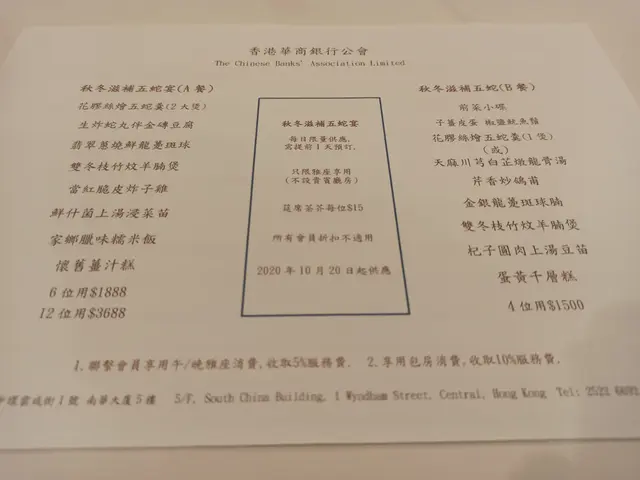 香港華商銀行公會
The Chinese Banks' Association Limited
秋冬滋補五蛇宴(A 餐)
花膠絲燴五蛇羹(2 大煲)
生炸蛇丸伴金磚豆腐
翡翠蔥燒鮮龍躉斑球
雙冬枝竹炆羊腩煲
當紅脆皮炸子雞
鮮什菌上湯浸菜苗
家鄉臘味糯米飯
懷舊薑汁糕
6 位用$1888
12 位用$3688
秋冬滋補五蛇宴
每日限量供應,
需提前1天預訂,
只限雅座享用
(不設貴賓廳房)
筵席茶芥每位$15
所有會員折扣不適用
2020 年 10 月 20 日起供應
秋冬滋補五蛇(B 餐)
前菜小碟
子薑皮蛋 椒鹽魷魚鬚
花膠絲燴五蛇羹(1 煲)
(或)
天麻川芎白芷燉龍骨湯
芹香炒鴿甫
金銀龍躉斑球腩
雙冬枝竹炆羊腩煲
杞子圓肉上湯豆苗
蛋黃千層糕
4 位用$1500
1. 聯繫會員享用午/晚雅座消費,收取5%服務費. 2. 享用包房消費,收取10%服務費.
環雲咸街1號 南華大廈5樓 5/F, South China Building, 1 Wyndham Street, Central, Hong Kong Tel: 2522